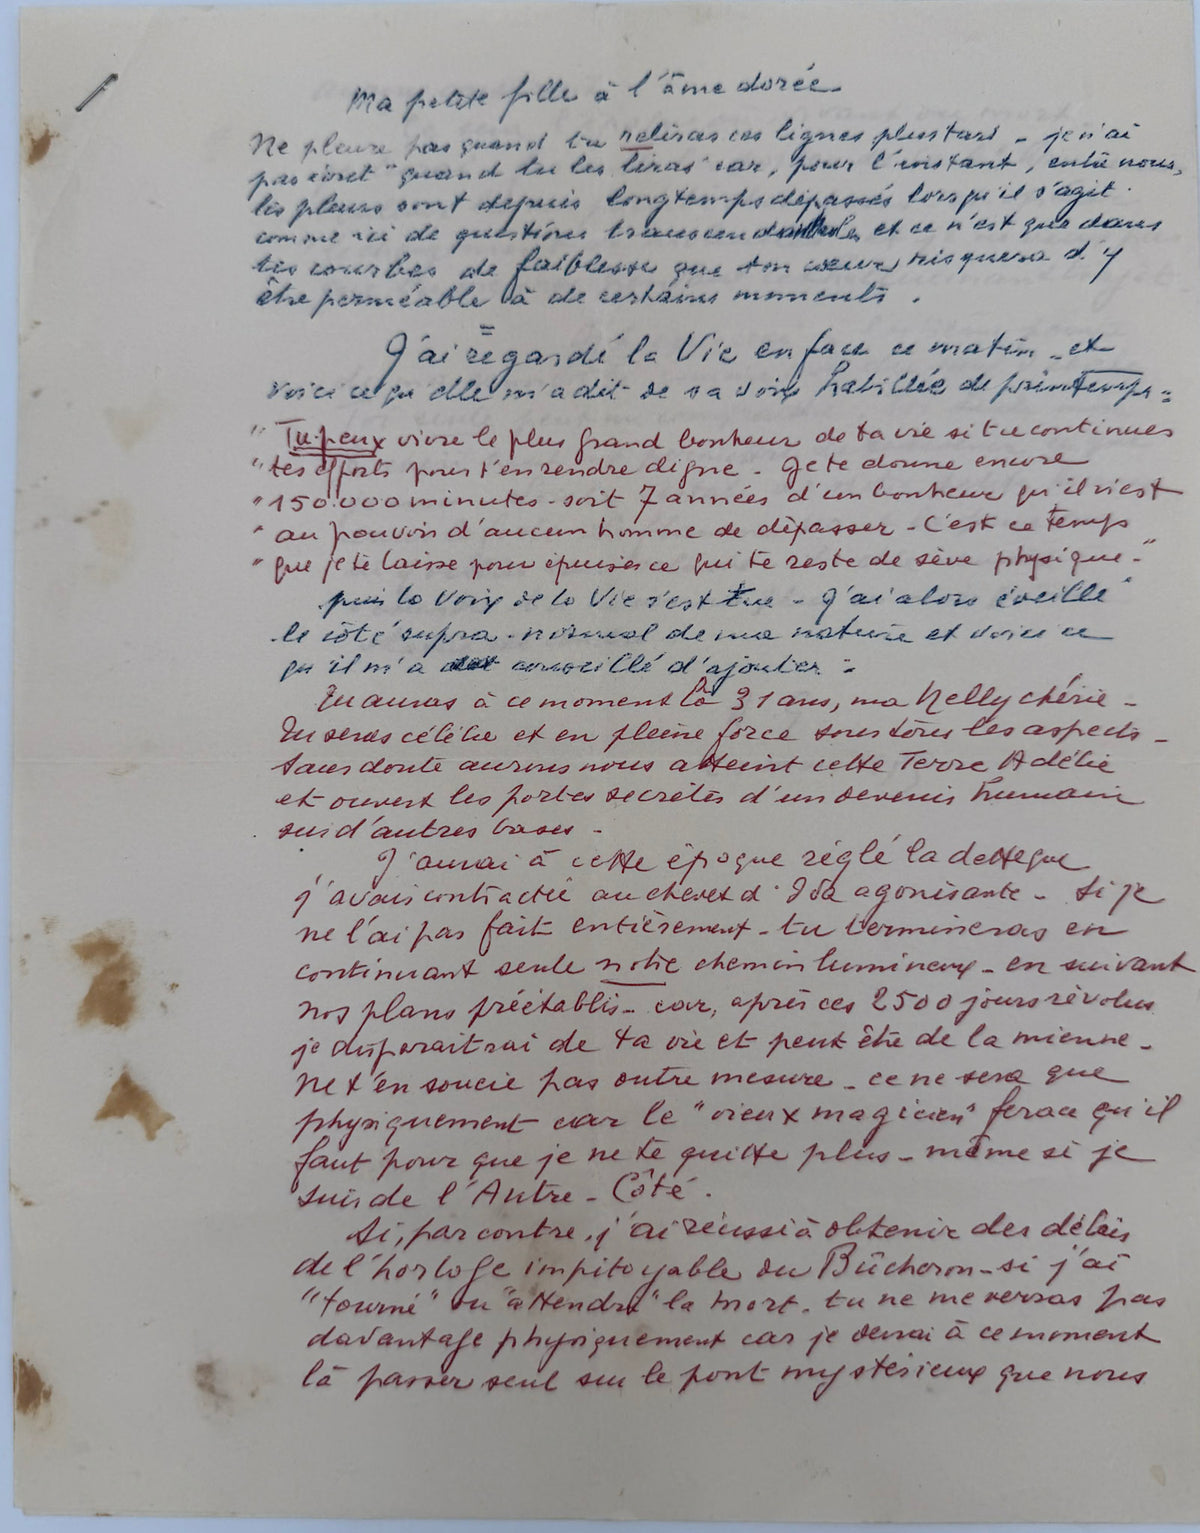 Ma petite fille à l'âme dorée
Ne pleure pas quand tu reliras ces lignes plus tard - je n'ai
pas écrit "quand tu les liras" car, pour l'instant, entre nous,
les pleurs sont depuis longtemps dépassés lorsqu'il s'agit
comme ici de questions et ce n'est que dans
tes courbes de faiblesse que ton coeur risquera d'y
être perméable à de certains moments.
J'ai regardé la Vie en face ce matin - et
voici ce qu'elle m'a dit de sa voix habillée de printemps =
" Tu peux vivre le plus grand bonheur de ta vie si tu continues
" tes efforts pour t'en rendre digne - Je te donne encore
" 150.000 minutes - soit 7 années d'un bonheur qu'il n'est
" au pouvoir d'aucun homme de dépasser - C'est ce temps
" que je te laisse pour épuiser ce qui te reste de sève physique - "
puis la Voix de la Vie s'est tue - J'ai alors éveillé
le côté supra-normal de ma nature et voici ce
qu'il m'a conseillé d'ajouter :
Tu auras à ce moment là 31 ans, ma Nelly chérie -
Tu seras célèbre et en pleine force sous tous les aspects -
Sans doute aurons nous atteint cette Terre Adélie
et ouvert les portes secrètes d'un devenir humain
sur d'autres bases -
J'aurai à cette époque réglé la dette que
j'avais contractée au chevet d'Ida agonisante - Si je
ne l'ai pas fait entièrement - tu termineras en
continuant seule notre chemin lumineux - en suivant
nos plans préétablis - car, après ces 2500 jours révolus
je disparaitrai de ta vie et peut être de la mienne -
Ne t'en soucie pas outre mesure - ce ne sera que
physiquement car le "vieux magicien" fera ce qu'il
faut pour que je ne te quitte plus - même si je
suis de l'Autre - Côté.
Si, par contre, j'ai réussi à obtenir des délais
de l'horloge impitoyable du Bûcheron - si j'ai
"tourné" ou "attendri" la mort - tu ne me verras pas
davantage physiquement car je devrai à ce moment
là passer seul sur le pont mystérieux que nous